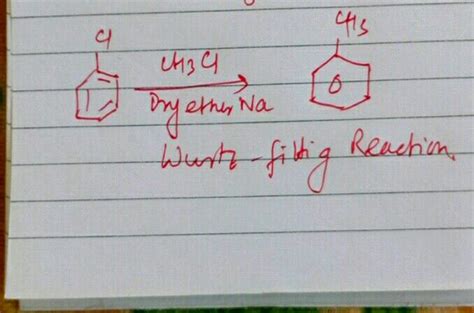 Cl
CH3
CH3Cl
Dry ether Na
Wurtz-fittig Reaction